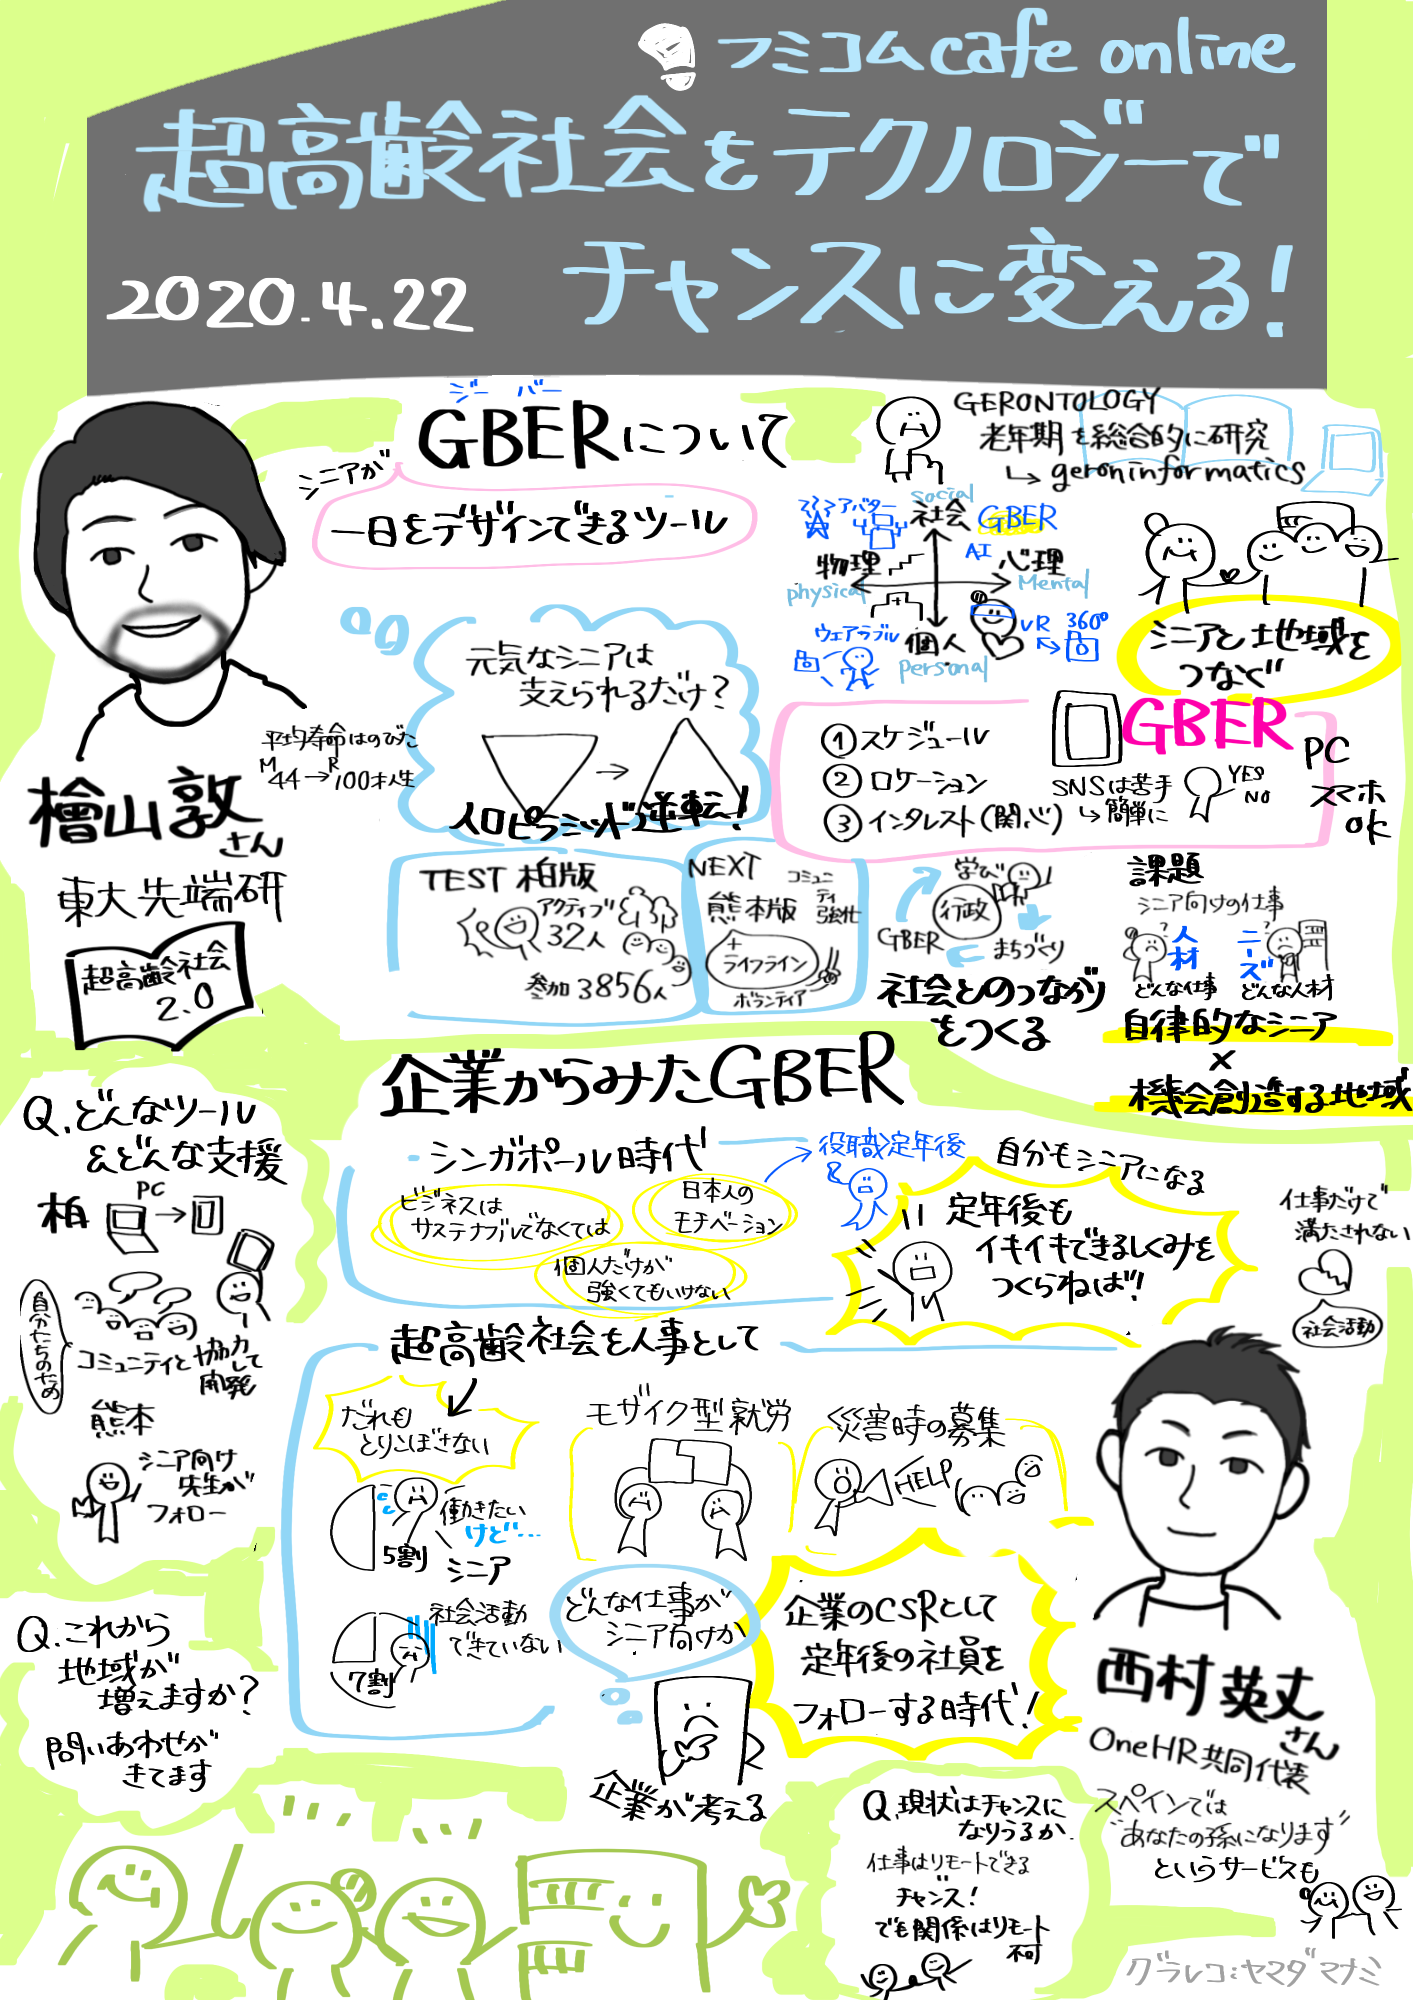 フミコムcafe online
超高齢社会をテクノロジーで
チャンスに変える!
2020.4.22
ジーバー
GBERについて
シニアが
一日をデザインできるツール
GERONTOLOGY
老年期を総合的に研究
↳ geroninformatics
social
社会
GBER
アバター
AI
物理
physical
心理
Mental
ウェアラブル
個人
personal
VR 360°
シニアと地域を
つなぐ
元気なシニアは
支えられるだけ?
→
人口ピラミッド逆転!
平均寿命はのびた
M R
44→100才人生
檜山敦
さん
東大先端研
超高齢社会
2.0
①スケジュール
②ロケーション
③インタレスト(関心)
GBER
SNSは苦手
↳簡単に
YES
NO
PC
スマホ
OK
TEST 柏版
アクティブ
32人
参加3856人
NEXT
コミュニ
ティ
強化
熊本版
+
ライフライン
ボランティア
学び
行政
GBER
まちづくり
社会とのつながり
をつくる
課題
シニア向けの仕事
人材
ニーズ
どんな仕事
どんな人材
自律的なシニア
×
機会創造する地域
企業からみたGBER
シンガポール時代
ビジネスは
サステナブルでなくては
日本人の
モチベーション
個人だけが
強くてもいけない
役職定年後
自分もシニアになる
定年後も
イキイキできるしくみを
つくらねば!
仕事だけで
満たされない
社会活動
超高齢社会を人事として
だれも
とりこぼさない
5割
働きたい
けど…
シニア
7割
社会活動
できていない
モザイク型就労
災害時の募集
HELP
どんな仕事が
シニア向けか
企業が考える
企業のCSRとして
定年後の社員を
フォローする時代!
西村英丈
さん
OneHR共同代表
スペインでは
"あなたの孫になります"
というサービスも
Q.どんなツール
&どんな支援
柏
PC
→
自分たちのため
コミュニティと協力して
開発
熊本
シニア向け
先生が
フォロー
Q.これから
地域が
増えますか?
問いあわせが
きてます
Q.現状はチャンスに
なりうるか
仕事はリモートできる
チャンス!
でも関係はリモート
不可
グラレコ:ヤマダマナミ